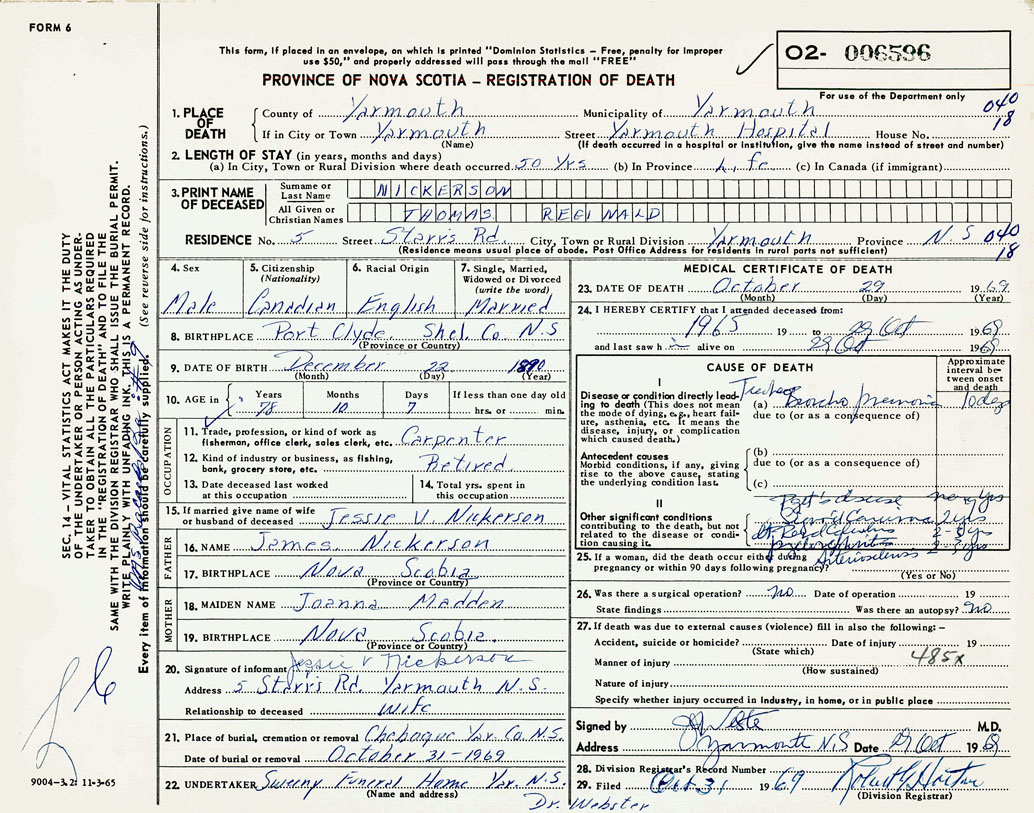 FORM 6
This form, if placed in an envelope, on which is printed "Dominion Statistics – Free, penalty for improper
use $50," and properly addressed will pass through the mail "FREE"
PROVINCE OF NOVA SCOTIA – REGISTRATION OF DEATH
O2- 006596
For use of the Department only
040
18
1. PLACE OF DEATH
County of Yarmouth Municipality of Yarmouth
If in City or Town Yarmouth Street Yarmouth Hospital House No.
(Name) (If death occurred in a hospital or institution, give the name instead of street and number)
2. LENGTH OF STAY (in years, months and days)
(a) In City, Town or Rural Division where death occurred 50 Yrs (b) In Province Life (c) In Canada (if immigrant)
3. PRINT NAME OF DECEASED
Surname or Last Name NICKERSON
All Given or Christian Names THOMAS REGINALD
RESIDENCE No. 5 Street Starrs Rd. City, Town or Rural Division Yarmouth Province N.S 040
18
(Residence means usual place of abode. Post Office Address for residents in rural parts not sufficient)
4. Sex
Male
5. Citizenship
(Nationality)
Canadian
6. Racial Origin
English
7. Single, Married,
Widowed or Divorced
(write the word)
Married
8. BIRTHPLACE Port Clyde, Shel. Co. N.S
(Province or Country)
9. DATE OF BIRTH December 22 1890
(Month) (Day) (Year)
10. AGE in Years 78 Months 10 Days 7 If less than one day old
hrs. or min.
OCCUPATION
11. Trade, profession, or kind of work as
fisherman, office clerk, sales clerk, etc. Carpenter
12. Kind of industry or business, as fishing,
bank, grocery store, etc. Retired
13. Date deceased last worked
at this occupation
14. Total yrs. spent in
this occupation
15. If married give name of wife
or husband of deceased Jessie V. Nickerson
FATHER
16. NAME James Nickerson
17. BIRTHPLACE Nova Scotia
(Province or Country)
MOTHER
18. MAIDEN NAME Joanna Madden
19. BIRTHPLACE Nova Scotia.
(Province or Country)
20. Signature of informant Jessie V Nickerson
Address 5 Starrs Rd. Yarmouth N.S.
Relationship to deceased Wife
21. Place of burial, cremation or removal Chebogue Yar. Co. N.S.
Date of burial or removal October 31-1969
22. UNDERTAKER Sweeny Funeral Home Yar. N.S.
(Name and address)
Dr. Webster
MEDICAL CERTIFICATE OF DEATH
23. DATE OF DEATH October 29 1969
(Month) (Day) (Year)
24. I HEREBY CERTIFY that I attended deceased from:
1965 19 to 29 Oct 1969
and last saw h im alive on 29 Oct 1969
CAUSE OF DEATH
Approximate
interval be-
tween onset
and death
I
Disease or condition directly lead-
ing to death (This does not
mean the mode of dying, e.g., heart fail-
ure, asthenia, etc. It means the
disease, injury, or complication
which caused death.)
(a) Broncho Pneumonia 10 days
due to (or as a consequence of)
Antecedent causes
Morbid conditions, if any, giving
rise to the above cause, stating
the underlying condition last.
(b)
due to (or as a consequence of)
(c)
II
Other significant conditions
contributing to the death, but not
related to the disease or condi-
tion causing it.
Pott's disease many yrs
2 yrs
Arteriosclerosis
25. If a woman, did the death occur either during
pregnancy or within 90 days following pregnancy?
(Yes or No)
26. Was there a surgical operation? no Date of operation 19
State findings Was there an autopsy? no
27. If death was due to external causes (violence) fill in also the following: –
Accident, suicide or homicide? Date of injury 19
(State which)
485x
Manner of injury
(How sustained)
Nature of injury
Specify whether injury occurred in industry, in home, or in public place
Signed by M.D.
Address Yarmouth N.S Date 29 Oct 1969
28. Division Registrar's Record Number
29. Filed Oct. 31 1969
(Division Registrar)
SEC. 14 – VITAL STATISTICS ACT MAKES IT THE DUTY
OF THE UNDERTAKER OR PERSON ACTING AS UNDER-
TAKER TO OBTAIN ALL THE PARTICULARS REQUIRED
IN THE "REGISTRATION OF DEATH" AND TO FILE THE
SAME WITH THE DIVISION REGISTRAR WHO SHALL ISSUE THE BURIAL PERMIT.
WRITE PLAINLY WITH UNFADING INK. THIS IS A PERMANENT RECORD.
Every item of information should be carefully supplied. (See reverse side for instructions.)
9004-3.2: 11-3-65